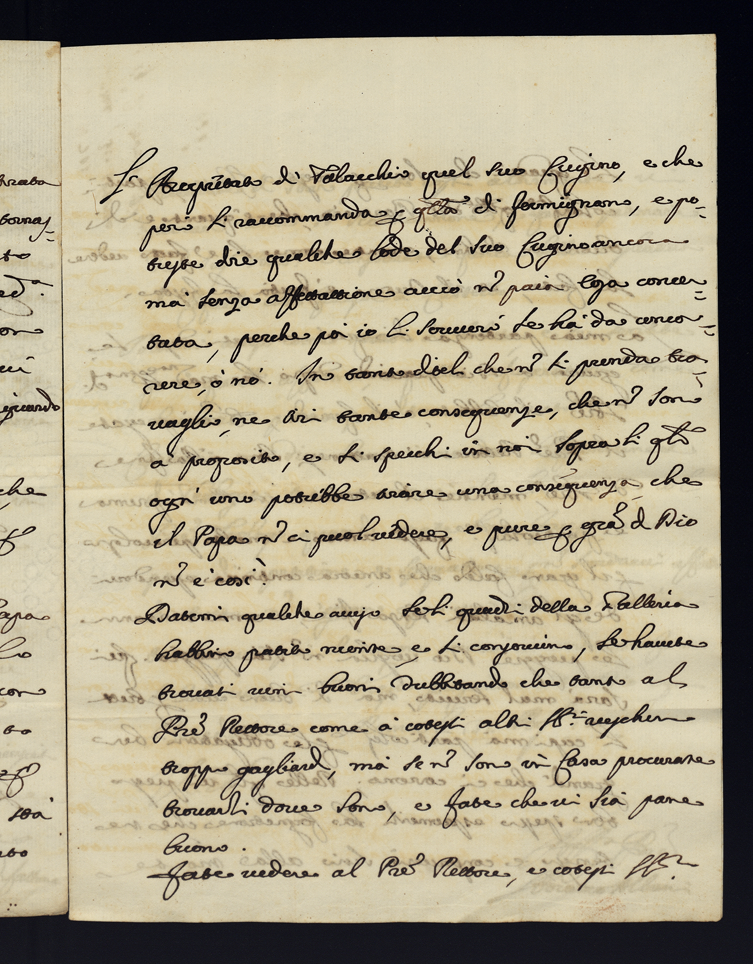 La Proprietato di Valacchio quel suo Cugino, e che
però si raccomanda p qsto di fermignano, e po-
treste dire qualche lode del suo Cugino ancora
mà senza affettazione acciò nˢ paia cosa concer-
tata, perche poi io li scriverò se hà da concor-
rere, ò nò. In tanto diteli che nˢ si prenda tra-
vaglio, ne tiri tante consequenze, che nˢ sono
à proposito, e si specchi in noi sopra li qˡⁱ
ogni uno potrebbe tirare una consequenza, che
il Papa nˢ ci puol vedere, e pure p graˢ di Dio
nˢ è così.
Datemi qualche aviso se li quadri della Galleria
habbino patito niente, e si consonino, se havete
trovati vini buoni dubbitando che tanto al
Prˢ Rettore come à cotesti altri SSʳⁱ rieschino
troppo gagliardi, mà se nˢ sono in Casa procurate
trovarli dove sono, e fate che vi sià pane
buono.
Fate vedere al Prˢ Rettore, e cotesti SSʳⁱ